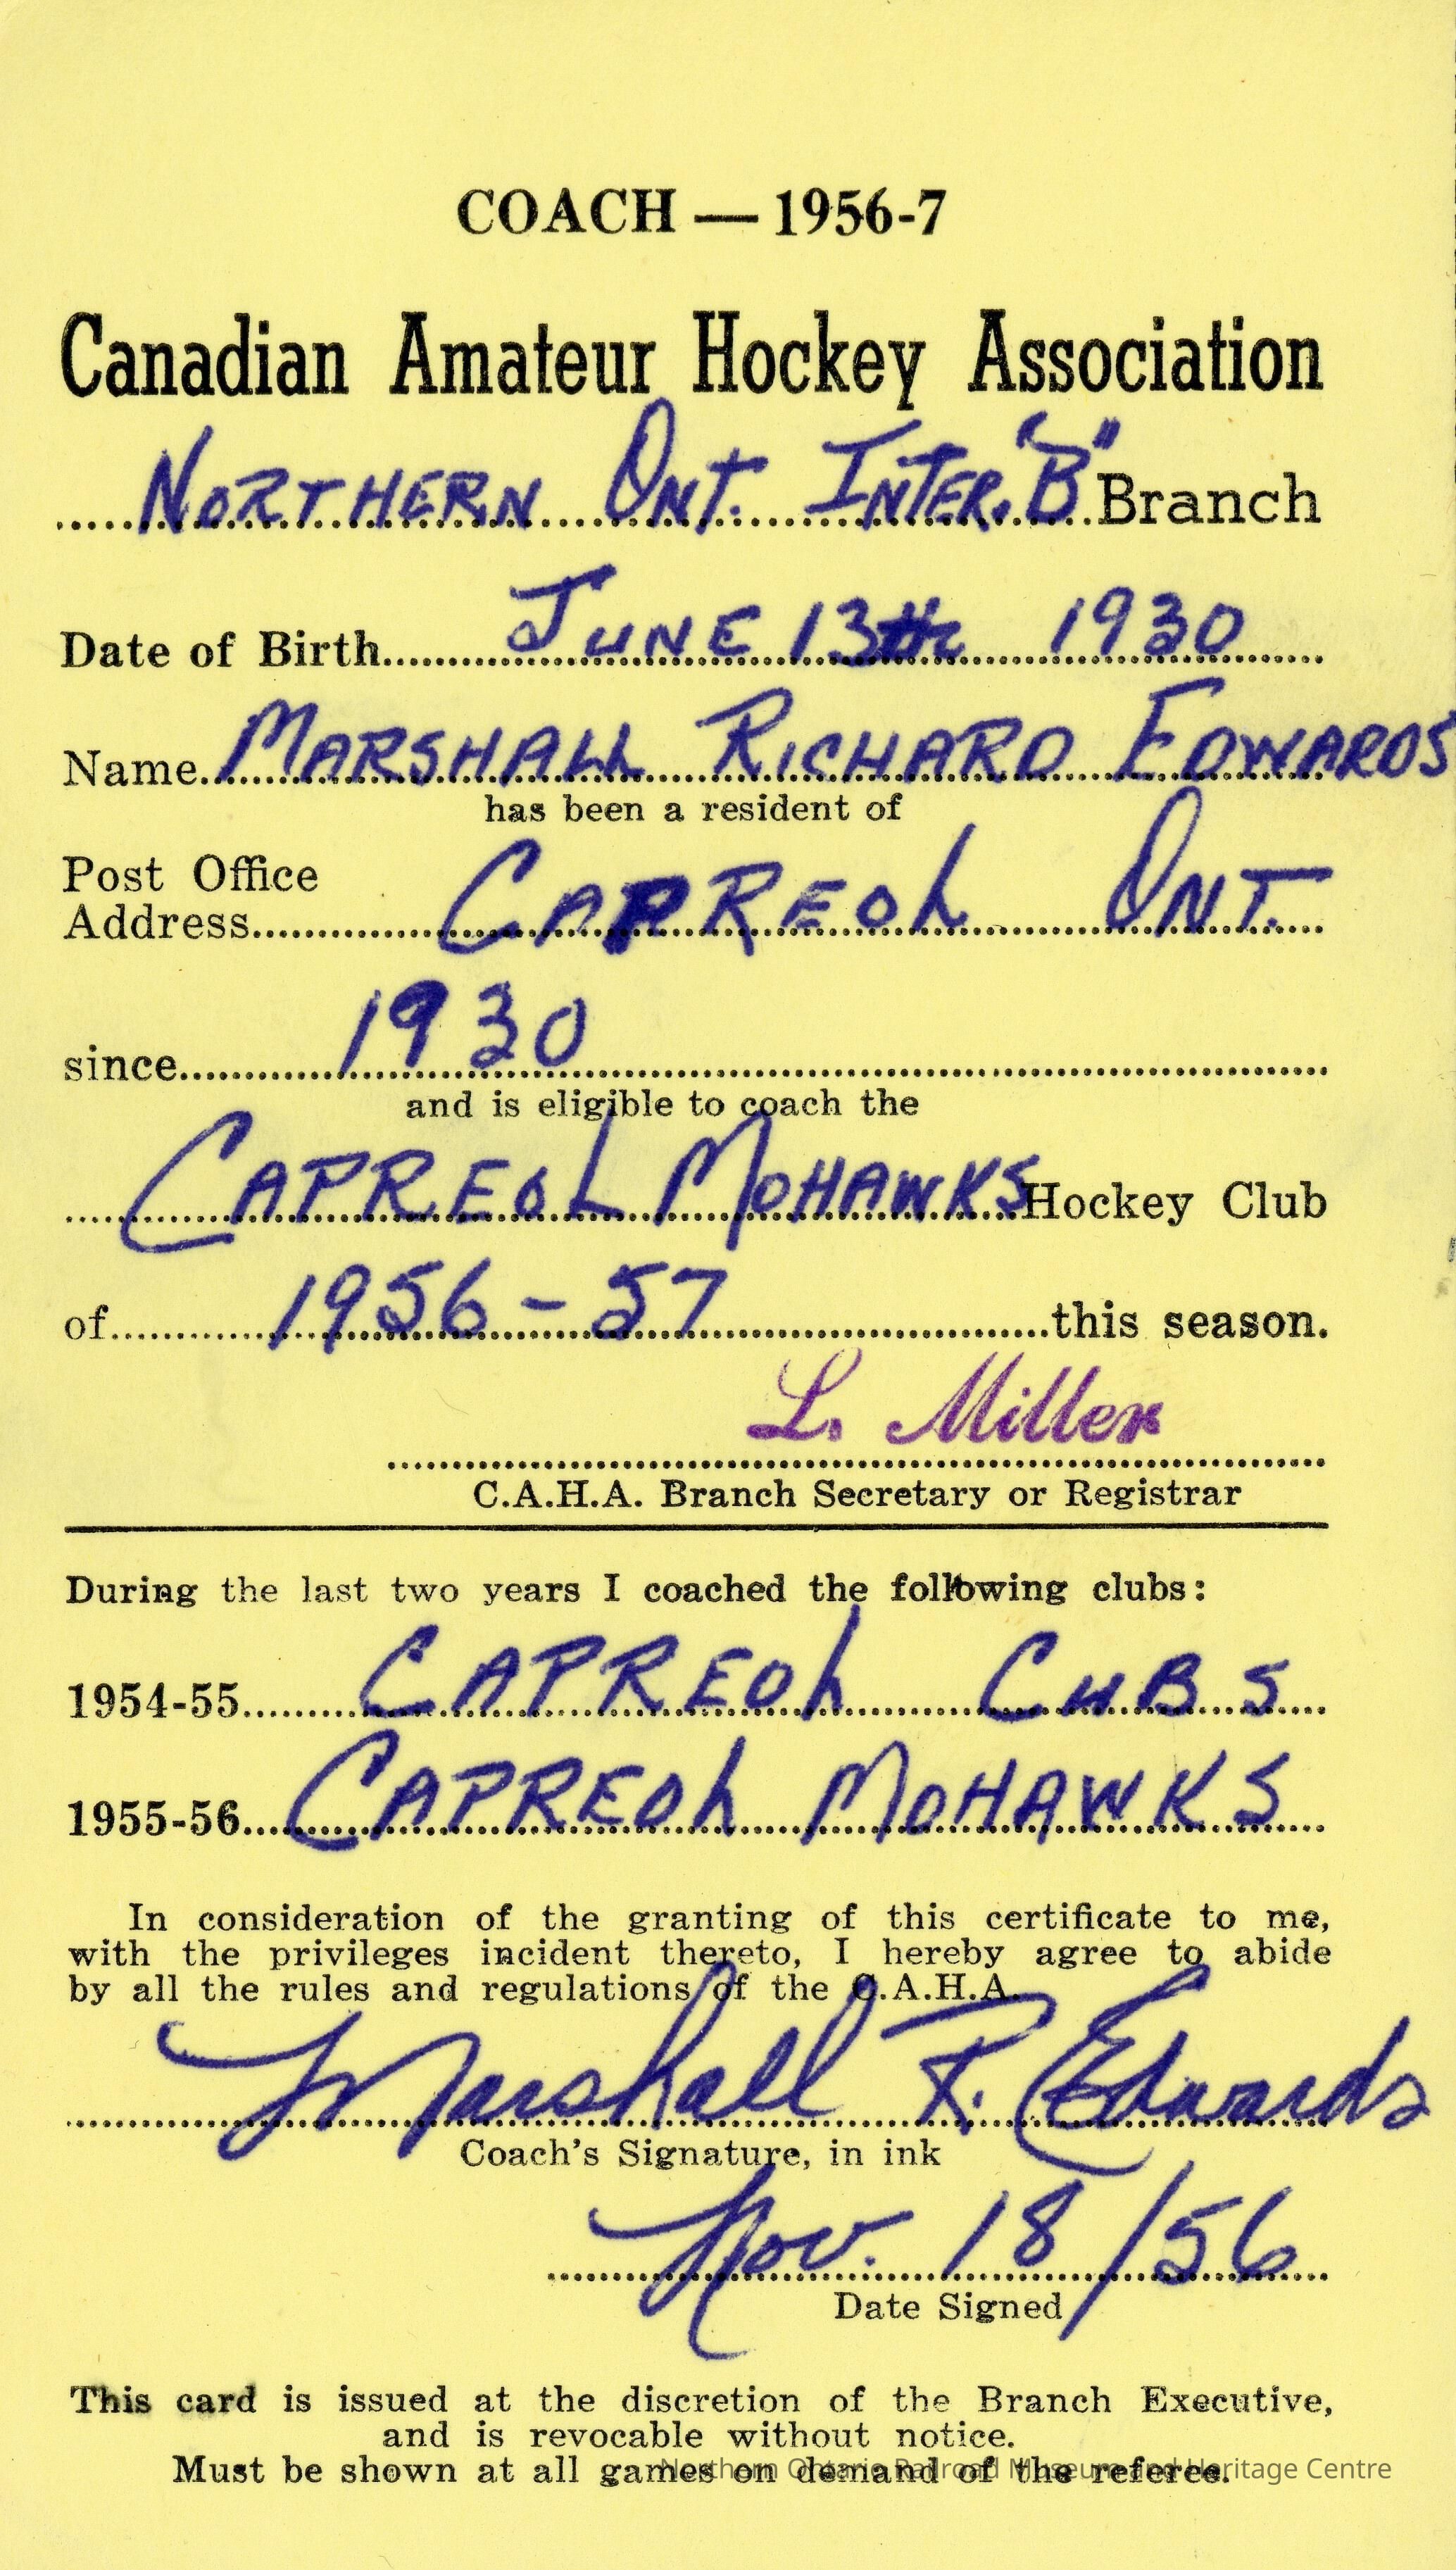 COACH — 1956-7
Canadian Amateur Hockey Association
NORTHERN ONT. INTER. "B" Branch
Date of Birth JUNE 13th 1930
Name MARSHALL RICHARD EDWARDS
has been a resident of
Post Office
Address CAPREOL ONT.
since 1930
and is eligible to coach the
CAPREOL MOHAWKS Hockey Club
of 1956-57 this season.
L. Miller
C.A.H.A. Branch Secretary or Registrar
During the last two years I coached the following clubs:
1954-55 CAPREOL CUBS
1955-56 CAPREOL MOHAWKS
In consideration of the granting of this certificate to me,
with the privileges incident thereto, I hereby agree to abide
by all the rules and regulations of the C.A.H.A.
Marshall R. Edwards
Coach's Signature, in ink
Nov. 18/56
Date Signed
This card is issued at the discretion of the Branch Executive,
and is revocable without notice.
Must be shown at all games on demand of the referee.
Northern Ontario Railroad Museum and Heritage Centre